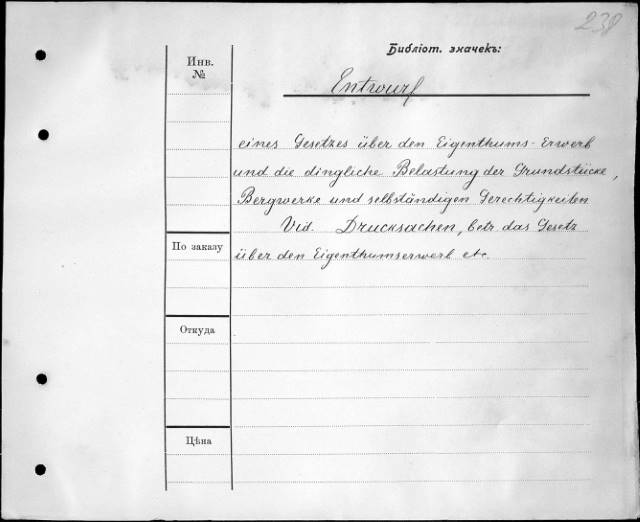 239
Библіот. значекъ:
Инв.
№
Entwurf
eines Gesetzes über den Eigenthums-Erwerb
und die dingliche Belastung der Grundstücke,
Bergwerke und selbständigen Gerechtigkeiten
Vid. Drucksachen, betr. das Gesetz
По заказу
über den Eigenthumserwerb etc.
Откуда
Цѣна